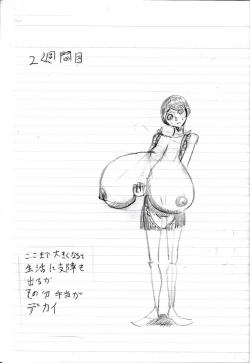 2週間目
ここまで大きくなると
生活に支障も
出るが
その分弁当が
デカイ